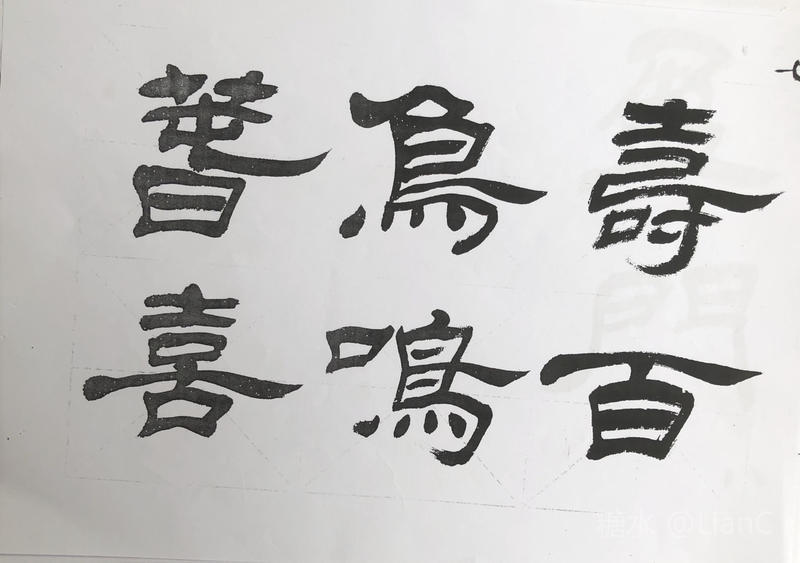 壽百
鳥鳴
萅喜
糖水 @LianC